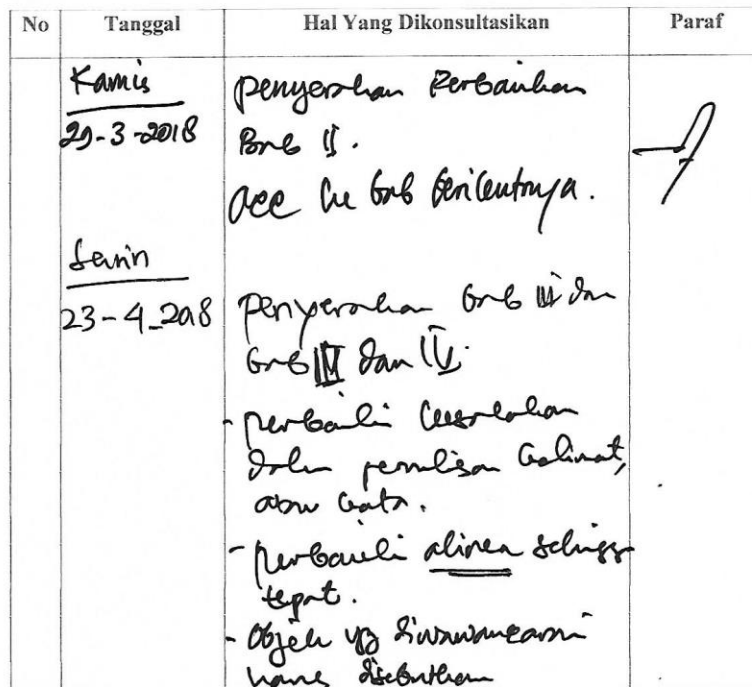 No Tanggal Hal Yang Dikonsultasikan Paraf
Kamis penyerahan Perbaikan
29-3-2018 Bab II.
acc ke bab berikutnya.
Senin
23-4-2018 penyerahan bab III dan
bab III dan IV.
- perbaiki kesalahan
dalam penulisan kalimat,
atau kata.
- perbaiki alinea sehingga
tepat.
- Objek yg diwawancarai
harus disebutkan